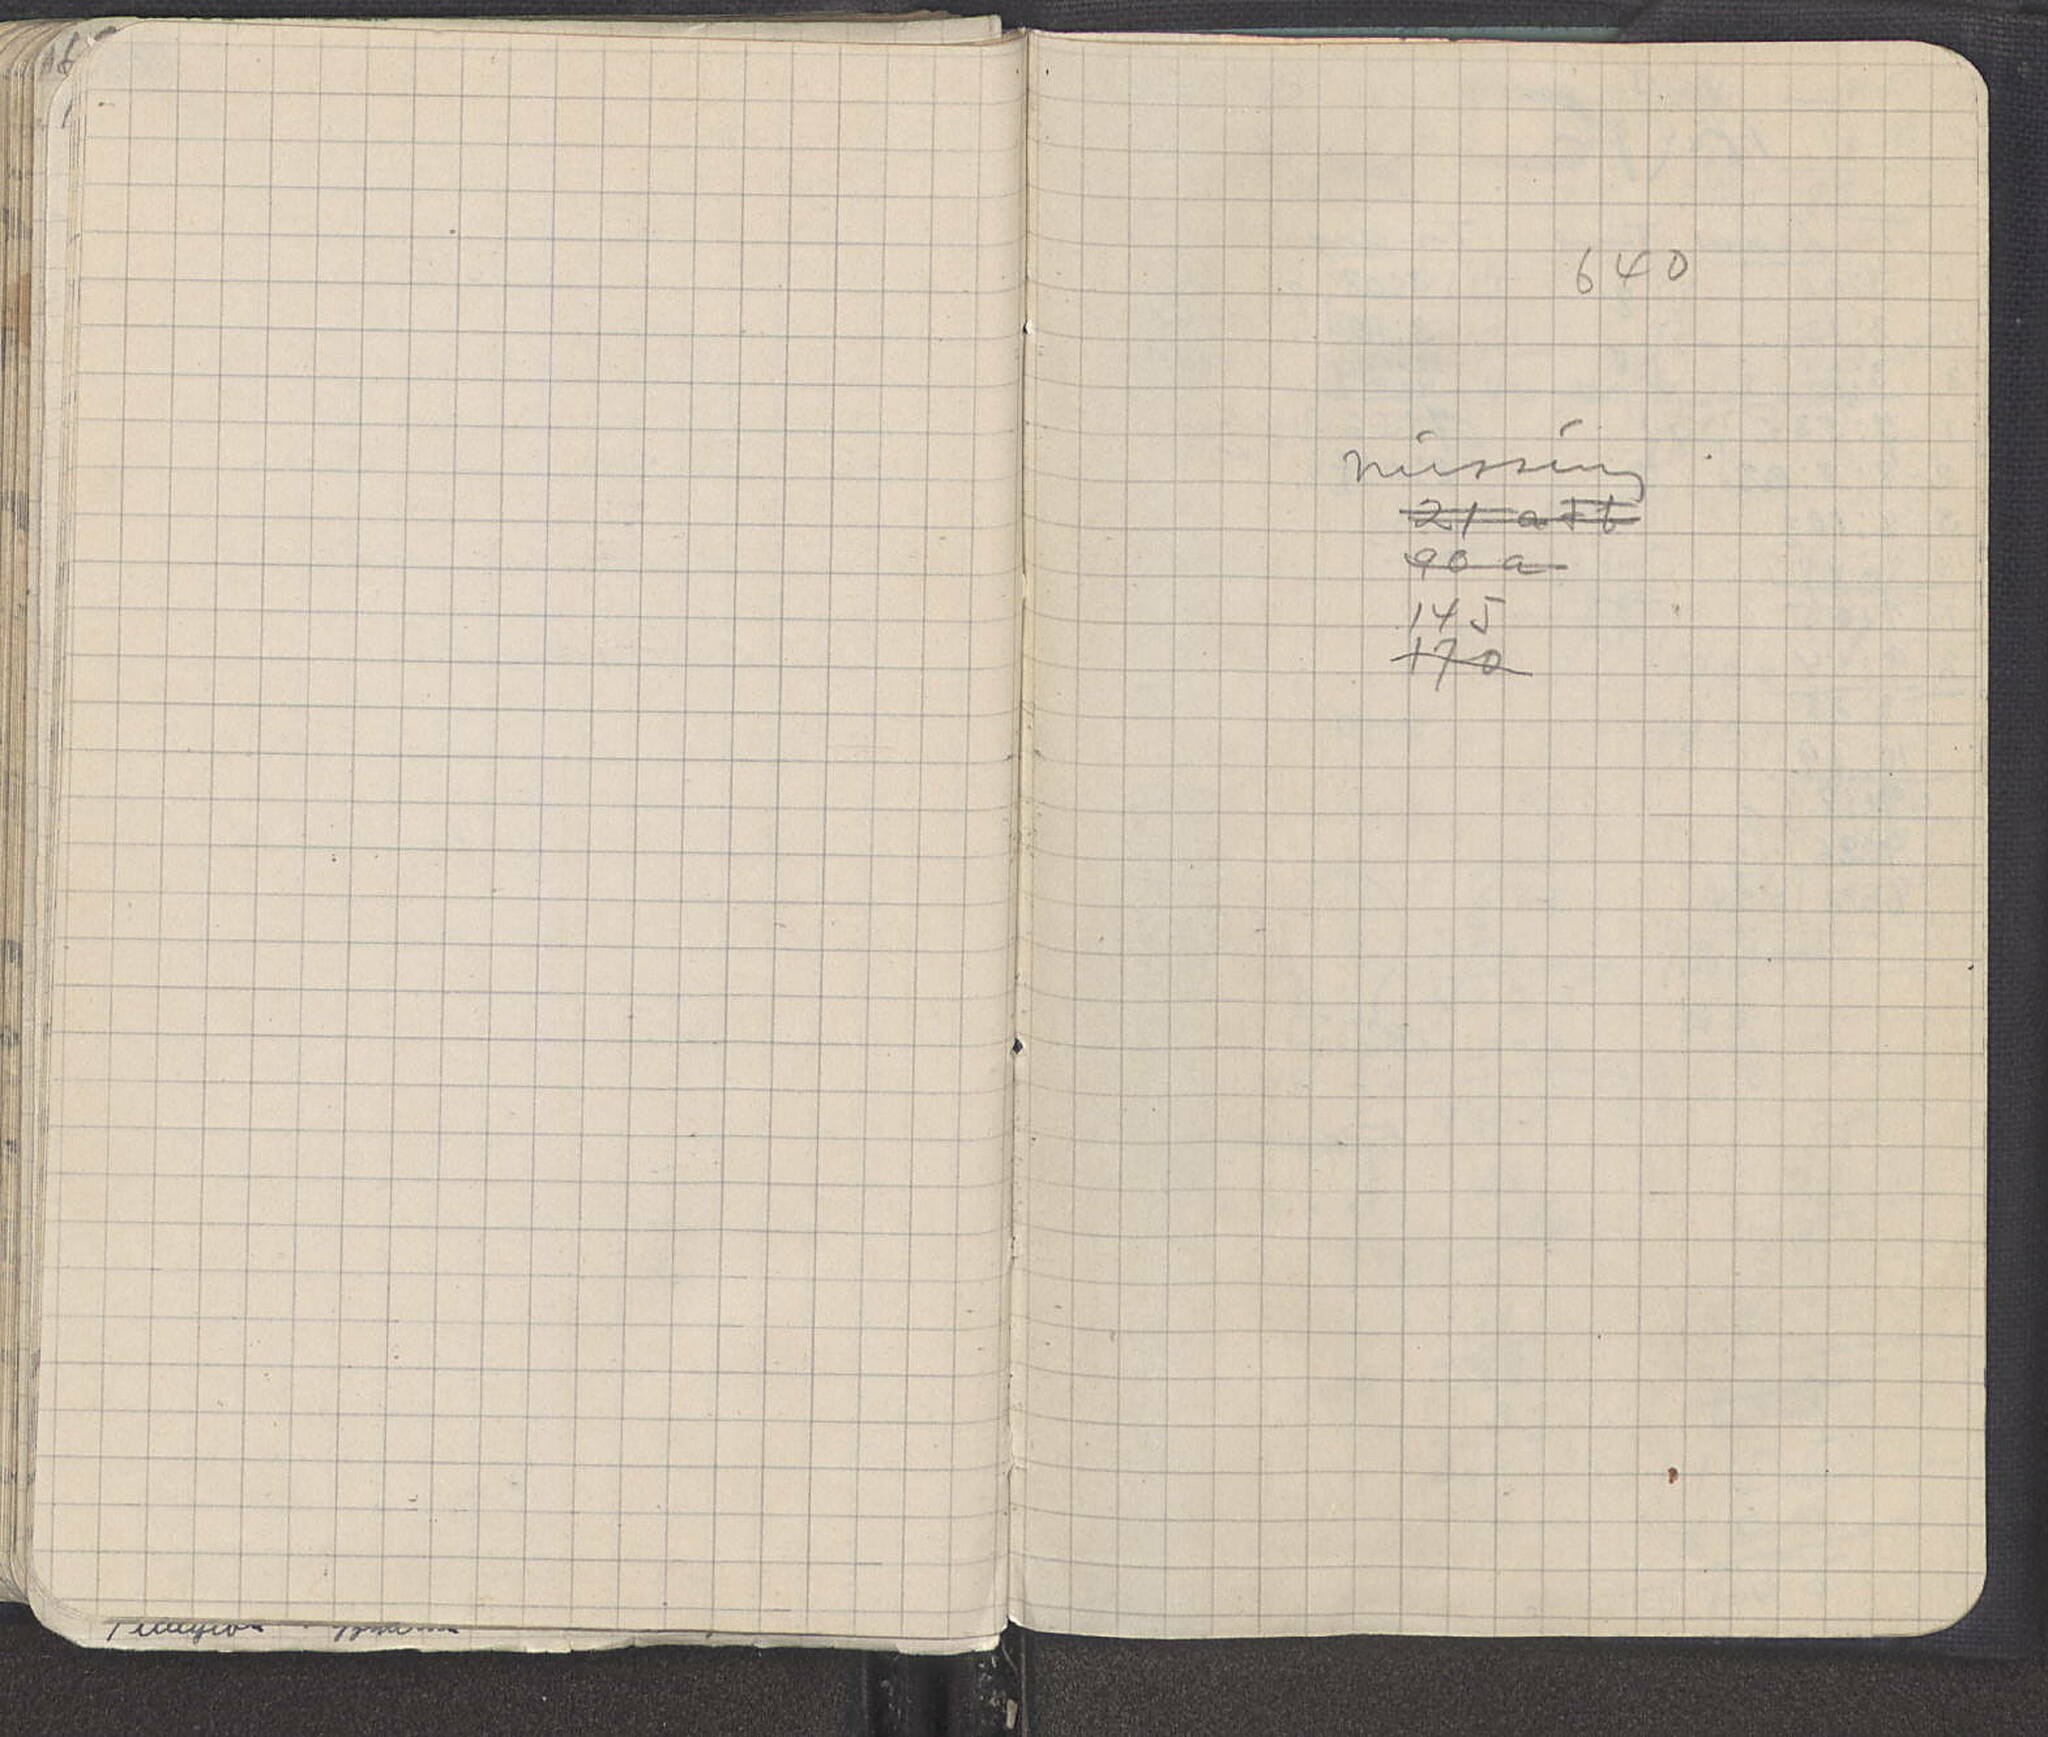 640
missing
21 a + b
90 a
145
170